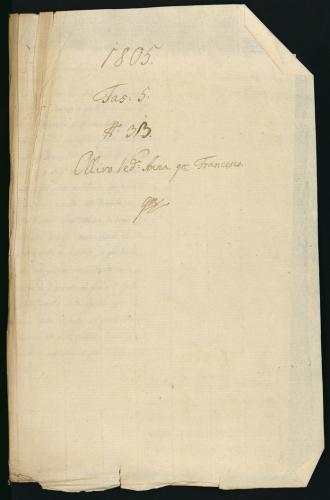 1805.
Fas. 5.
N.º 313.
Olivo Ved.ª Anna qm Francesco